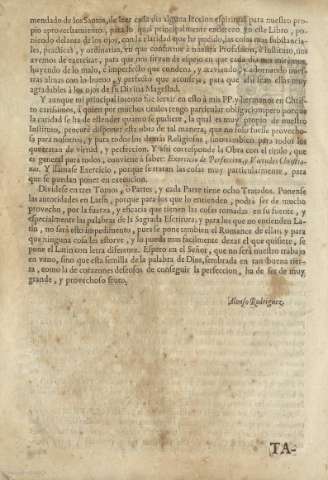 mendado de los Santos, de leer cada dia alguna leccion espiritual para nuestro pro-
pio aprovechamiento, para lo qual principalmente endereço yo este Libro, po-
niendo delante de los ojos, con la claridad que he podido, las cosas mas substancia-
les, practicas, y ordinarias, en que conforme à nuestra Profession, è Instituto, nos
avemos de exercitar, para que nos sirvan de espejo en que cada dia nos miremos,
huyendo de lo malo, è imperfecto que condena, y ataviando, y adornando nues-
tras almas con lo bueno, y perfecto que aconseja, para que assi sean ellas muy
agradables à los ojos de su Divina Magestad.
Y aunque mi principal intento fue servir en esto à mis PP. y hermanos en Chris-
to carissimos, à quien por muchos titulos tengo particular obligacion; pero porque
la caridad se ha de estender quanto se pudiere, la qual es muy proprio de nuestro
Instituto, procurè disponer esta obra de tal manera, que no solo fuesse provecho-
sa para nosotros, y para todos los demàs Religiosos, sino tambien para todos los
que tratan de virtud, y perfeccion. Y assi corresponde la Obra con el titulo, que
es general para todos, conviene à saber: Exercicio de Perfeccion, y Virtudes Christia-
nas. Y llamase Exercicio, porque se tratan las cosas muy particularmente, para
que se puedan poner en execucion.
Dividese en tres Tomos, ò Partes, y cada Parte tiene ocho Tratados. Ponense
las autoridades en Latin, porque para los que lo entienden, podrà ser de mucho
provecho, por la fuerza, y eficacia que tienen las cosas tomadas en su fuente, y
especialmente las palabras de la Sagrada Escritura; y para los que no entienden La-
tin, no serà esto impedimento, pues se pone tambien el Romance de ellas; y para
que ninguna cosa les estorve, y lo pueda mas facilmente dexar el que quisiere, se
pone el Latin con letra diferente. Espero en el Señor, que no serà nuestro trabajo
en vano, sino que esta semilla de la palabra de Dios, sembrada en tan buena tier-
ra, como la de corazones deseosos de conseguir la perfeccion, ha de ser de muy
grande, y provechoso fruto.
Alonso Rodriguez.
TA-